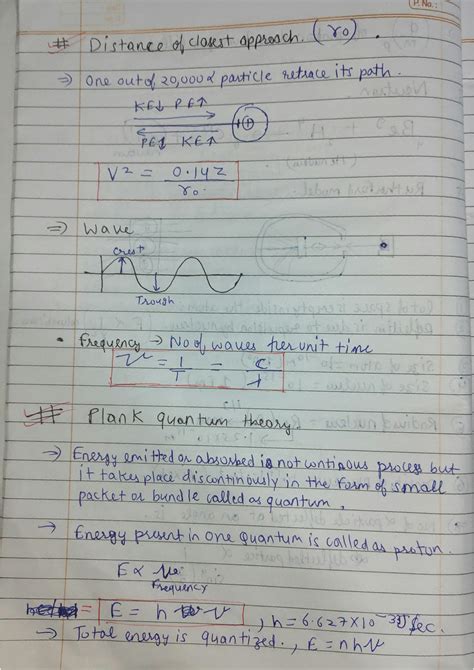 P.No.:
# Distance of closest approach. (r₀).
⇒ One out of 20,000 α particle retrace its path.
KE↓ PE↑
PE↓ KE↑
V² = 0.14Z / r₀
⇒ Wave
Crest
Trough
• Frequency → No of waves per unit time
ν = 1/T = c/λ
# Plank quantum theory
→ Energy emitted or absorbed is not continous process but
it takes place discontinously in the form of small
packet or bundle called as quantum.
→ Energy present in one quantum is called as proton.
E ∝ ν
Frequency
= E = h ν , h = 6.627×10⁻³⁴ J sec.
→ Total energy is quantized., E = nhν